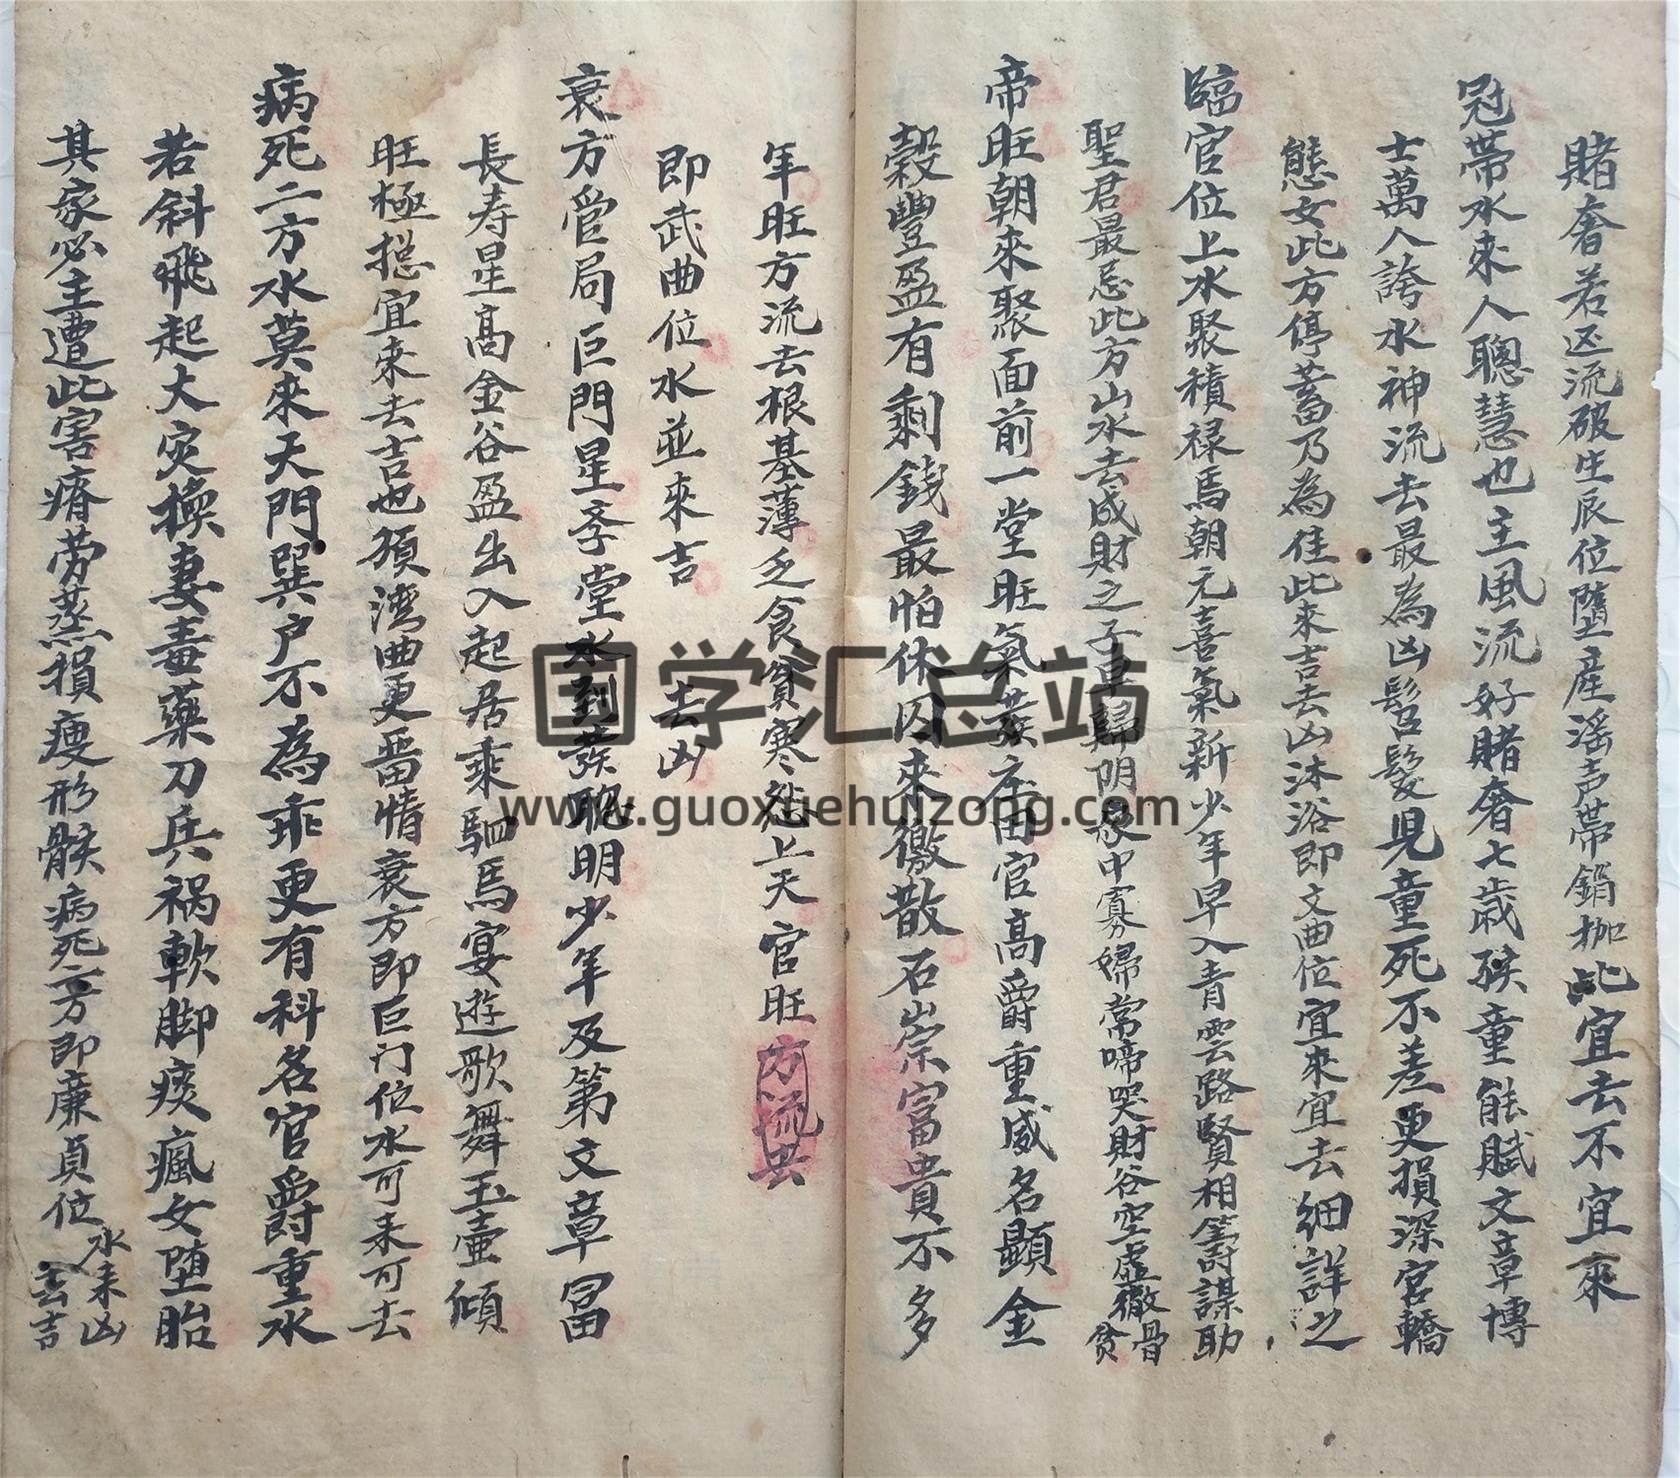 賭奢若返流破生辰位墮産滛声帶鎖枷此宜去不宜來
冠帶水來人聰慧也主風流好賭奢七歲孩童能賦文章博
士萬人誇水神流去最為凶髫髮見童死不差更損深宮轎
態女此方停蓄乃為佳此來吉去凶沐浴即文曲位宜來宜去細詳之
臨官位上水聚積禄馬朝元喜氣新少年早入青雲路賢相籌謀助
聖君最忌此方山水去成財之子早歸阴家中寡婦常啼哭財谷空虛徹骨貧
帝旺朝來聚面前一堂旺氣發庄田官高爵重威名顯金
穀豐盈有剩錢最怕休囚來徼散石崇富貴不多
年旺方流去根基薄乏食貧寒愁上天官旺方流去
即武曲位水並來吉去凶
衰方管局巨門星斈堂水到發聰明少年及第文章冨
長寿星高金谷盈出入起居乘駟馬宴遊歌舞玉壷傾
旺極搃宜來去吉也須湾曲更畱情衰方即巨门位水可來可去
病死二方水莫來天門巽户不為乖更有科名官爵重水
若斜飛起大灾換妻毒藥刀兵禍軟脚痰瘋女堕胎
其家必主遭此害瘠劳蒸損瘦形骸病死二方即廉貞位水来凶去吉
国学汇总站
www.guoxuehuizong.com